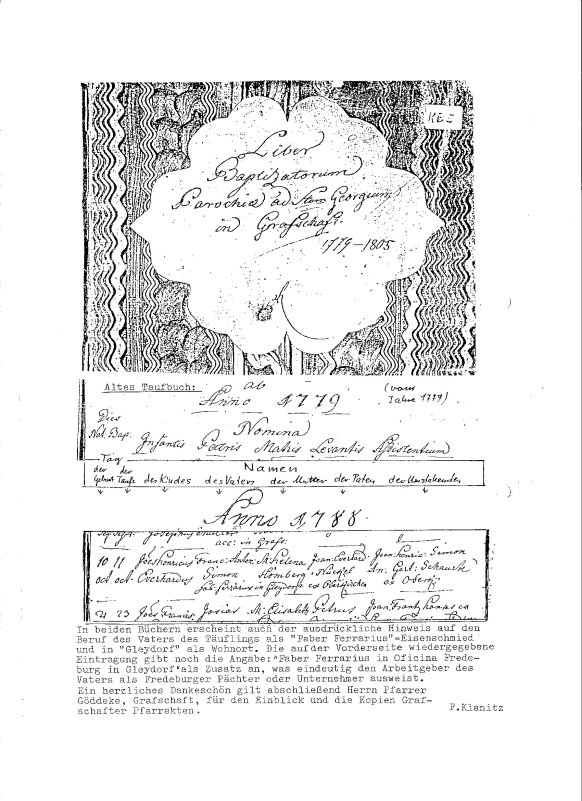 KB I
Liber
Baptizatorum
Parochiæ ad Stum Georgium
in Grafschaft.
1779–1805
Altes Taufbuch:
ab
(vom
Jahre 1779)
Anno 1779
Dies
Nomina
Nat. Bap. Infantis Patris Matris Levantis Assistentium
Tag
Namen
der der
Geburt Taufe des Kindes des Vaters der Mutter der Paten der Umstehenden
Anno 1788.
acc: in Grafs.
10 11 Joes Henricus Franc: Anton: M: Helena Joan: Everhard Joan: Henric: Simon
oct oct. Everhardus Simon Homberg An: Gert: Schauste
fab: ferrarius in Gleydorf ex
21 23 Joes Francis. Josias M: Elisabet Petrus Joan: Frantz Hanns ex
In beiden Büchern erscheint auch der ausdrückliche Hinweis auf den
Beruf des Vaters des Täuflings als "Faber Ferrarius"=Eisenschmied
und in "Gleydorf" als Wohnort. Die auf der Vorderseite wiedergegebene
Eintragung gibt noch die Angabe:"Faber Ferrarius in Oficina Frede-
burg in Gleydorf"als Zusatz an, was eindeutig den Arbeitgeber des
Vaters als Fredeburger Pächter oder Unternehmer ausweist.
Ein herzliches Dankeschön gilt abschließend Herrn Pfarrer
Göddeke, Grafschaft, für den Einblick und die Kopien Graf-
schafter Pfarrakten.
F.Klanitz